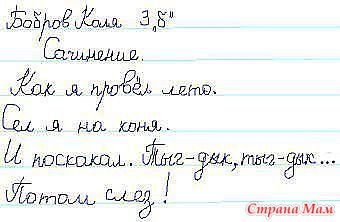 Бобров Коля 3 „б"
Сочинение.
Как я провёл лето.
Сел я на коня.
И поскакал. Тыг-дык, тыг-дык...
Потом слез!
Страна Мам